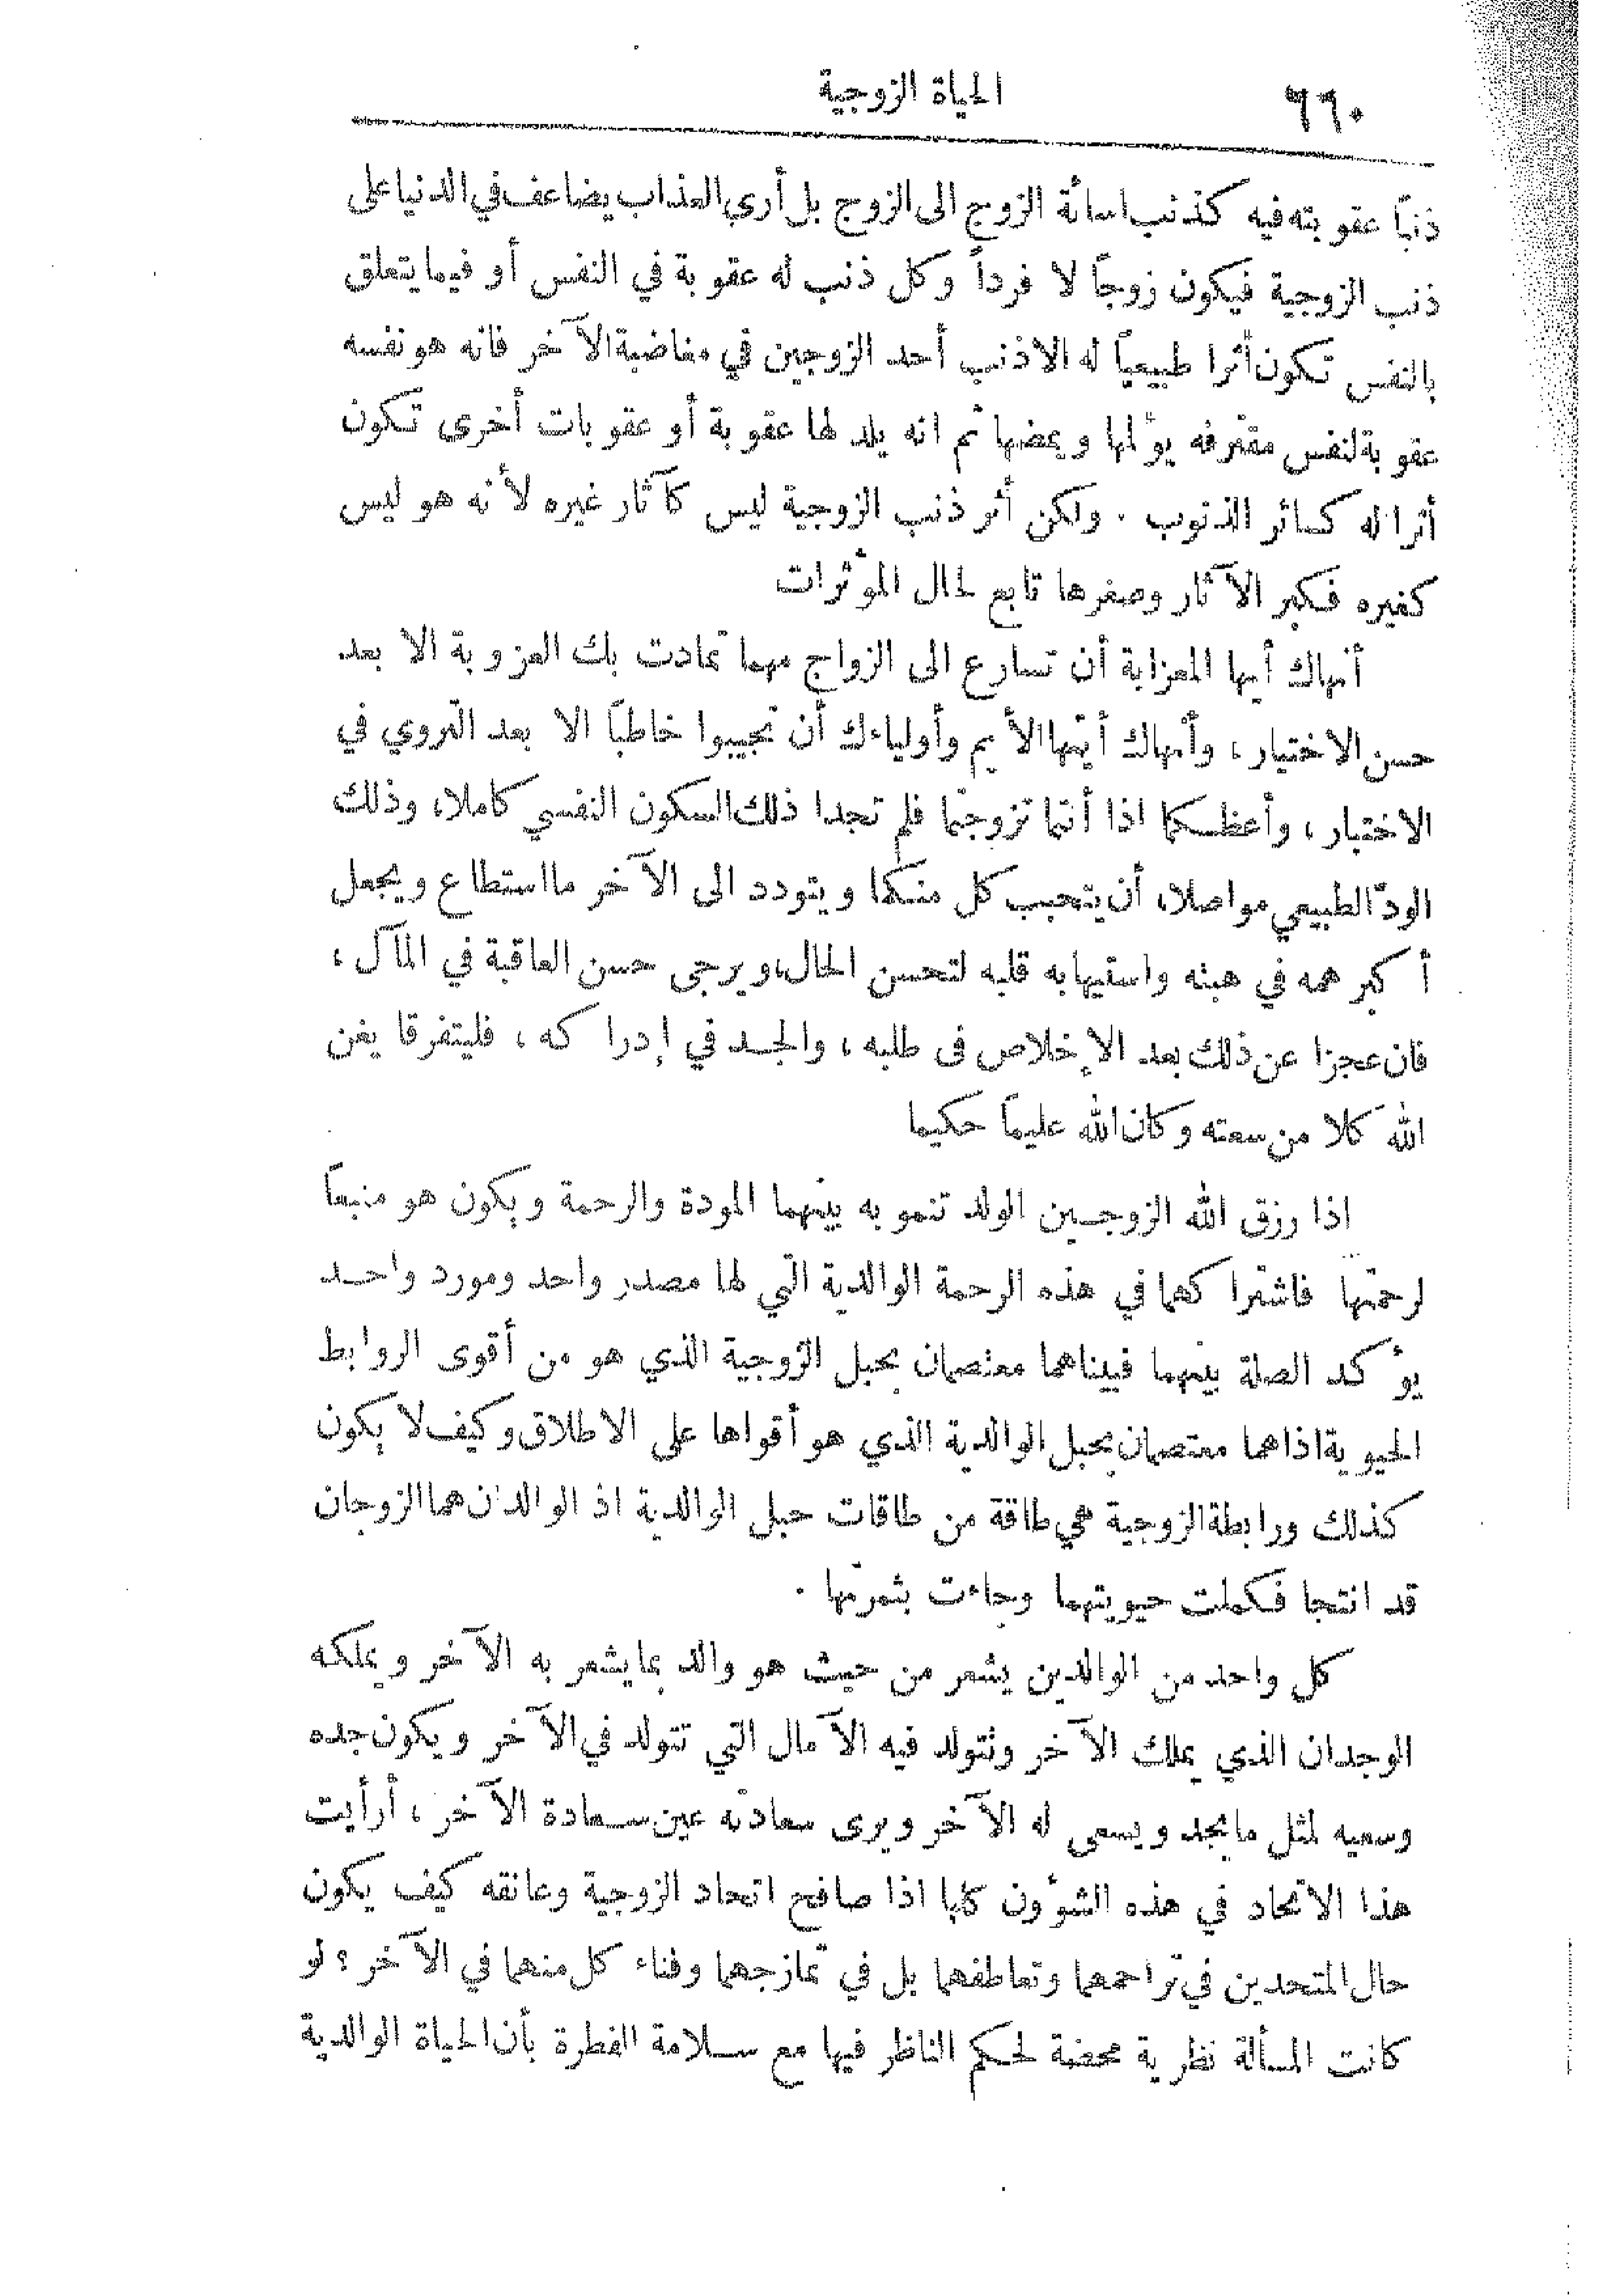 ٦٦٠
الحياة الزوجية
ذنبًا عقوبته فيه كذنب اسائة الزوج الى الزوج بل أرى العذاب يضاعف في الدنيا على
ذنب الزوجية فيكون زوجًا لا فرداً وكل ذنب له عقوبة في النفس أو فيما يتعلق
بالنفس تكون أثرا طبيعيًا له الا ذنب أحد الزوجين في مغاضبة الآخر فانه هو نفسه
عقوبة لنفس مقترفه يؤلمها ويمضها ثم انه يلد لها عقوبة أو عقوبات أخرى تكون
أثرا له كسائر الذنوب . ولكن أثر ذنب الزوجية ليس كآثار غيره لأنه هو ليس
كغيره فكبر الآثار وصغرها تابع لحال المؤثرات
أنهاك أيها المعزابة أن تسارع الى الزواج مهما تمادت بك العزوبة الا بعد
حسن الاختيار ، وأنهاك أيتها الأيم وأولياءك أن تجيبوا خاطبًا الا بعد التروي في
الاختبار ، وأعظكما اذا أنتما تزوجتما فلم تجدا ذلك السكون النفسي كاملا، وذلك
الودّ الطبيعي مواصلا، أن يتحبب كل منكما ويتودد الى الآخر ما استطاع ويجعل
أكبر همه في هبته واستيهابه قلبه لتحسن الحال، ويرجى حسن العاقبة في المآل ،
فان عجزا عن ذلك بعد الإخلاص في طلبه ، والجد في إدراكه ، فليتفرقا يغن
الله كلا من سعته وكان الله عليمًا حكيما
اذا رزق الله الزوجين الولد تنمو به بينهما المودة والرحمة ويكون هو منبعًا
لرحمتهما فاشتراكهما في هذه الرحمة الوالدية التي لها مصدر واحد ومورد واحد
يؤكد الصلة بينهما فبيناهما معتصمان بحبل الزوجية الذي هو من أقوى الروابط
الحيوية اذاهما معتصمان بحبل الوالدية الذي هو أقواها على الاطلاق وكيف لا يكون
كذلك ورابطة الزوجية هي طاقة من طاقات حبل الوالدية اذ الوالدان هما الزوجان
قد انتجا فكملت حيويتهما وجاءت بثمرتها .
كل واحد من الوالدين يشعر من حيث هو والد بما يشعر به الآخر ويملكه
الوجدان الذي يملك الآخر وتتولد فيه الآمال التي تتولد في الآخر ويكون جده
وسعيه لمثل ما يجد ويسعى له الآخر ويرى سعادته عين سعادة الآخر ، أرأيت
هذا الاتحاد في هذه الشؤون كلها اذا صافح اتحاد الزوجية وعانقه كيف يكون
حال المتحدين في تراحمهما وتعاطفهما بل في تمازجهما وفناء كل منهما في الآخر ؟ لو
كانت المسألة نظرية محضة لحكم الناظر فيها مع سلامة الفطرة بأن الحياة الوالدية